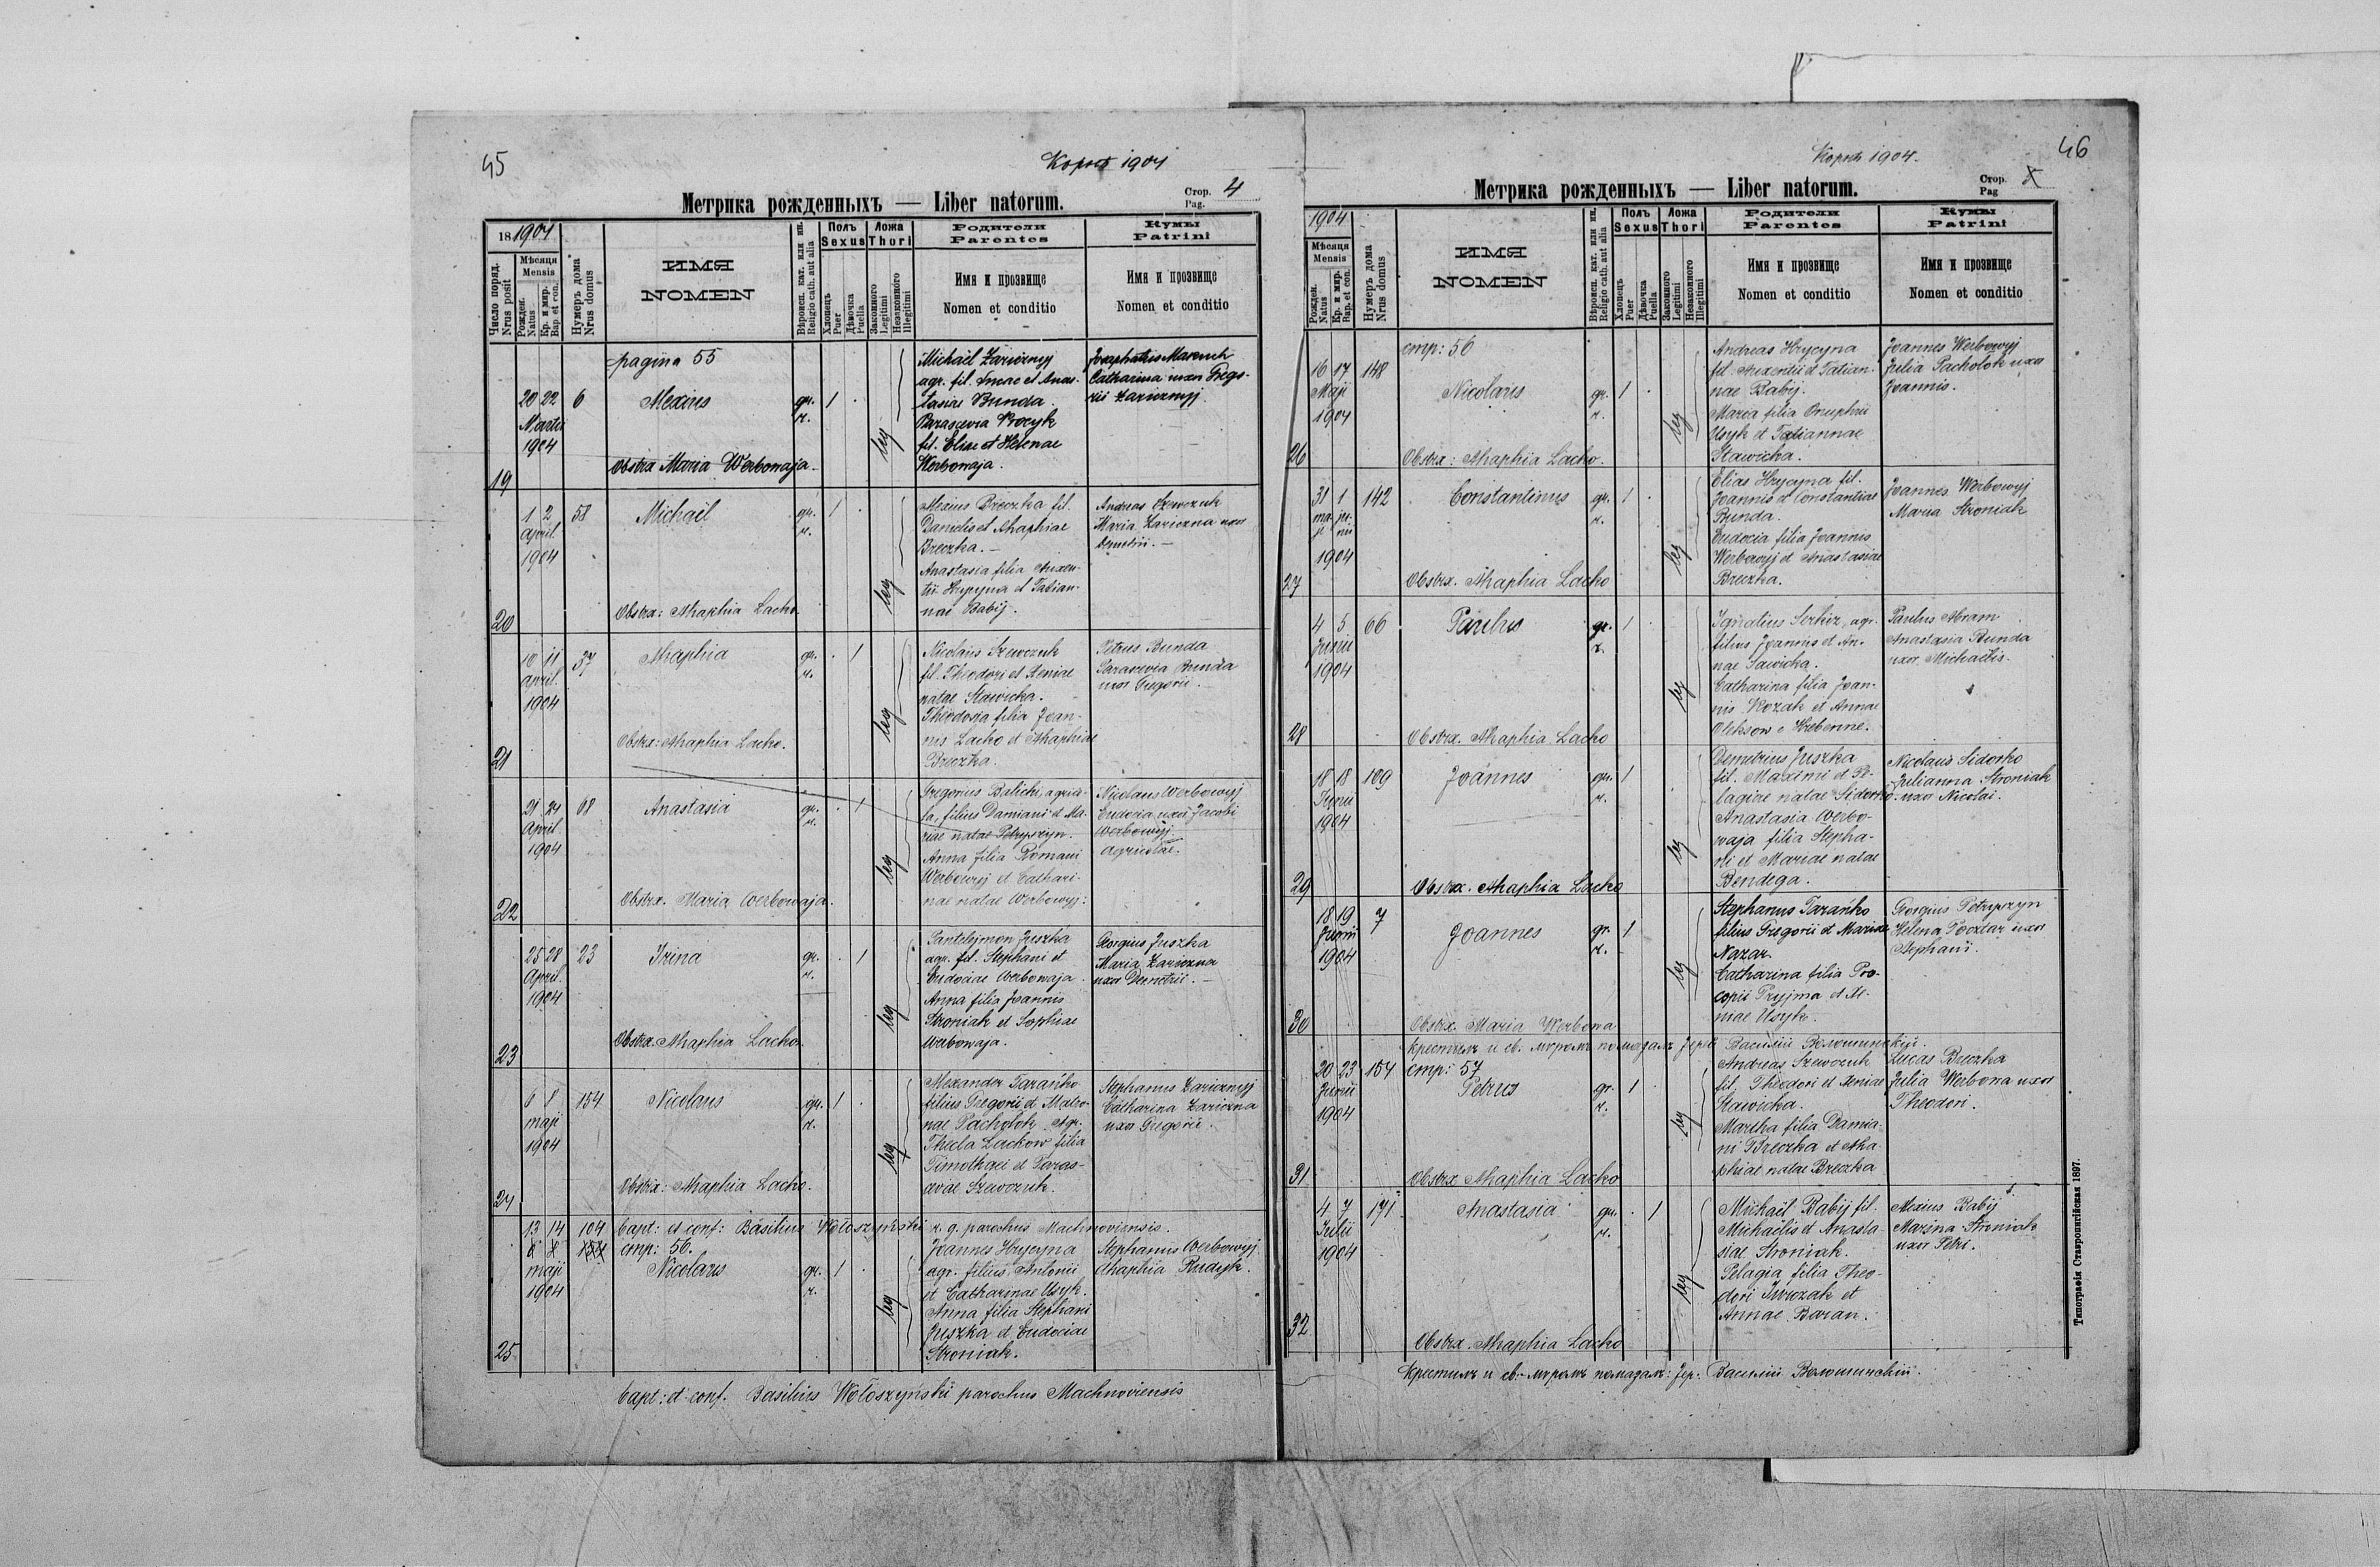 45
1904
Метрика рожденныхъ — Liber natorum.
Стор. Pag. 4
18 1904
Число поряд. Nrus posit
Мѣсяця Mensis
Рожден. Natus
Кр. и мир. Bap. et con.
Нумеръ дома Nrus domus
ИМЯ NOMEN
Вѣроисп. кат. или ин. Religio cath. aut alia
Полъ Sexus
Хлопецъ Puer
Дѣвочка Puella
Ложа Thori
Законного Legitimi
Незаконного Illegitimi
Родители Parentes
Имя и прозвище
Nomen et conditio
Кумы Patrini
Имя и прозвище
Nomen et conditio
pagina 55
19
20 22
Martii
1904
6
Alexius
gr. r.
1
leg
Michaël Zaricznyj
agr. fil. et Anas-
tasiae Bunda.
Parascevia
fil. Eliae et Helenae
Werbowaja.
Catharina uxor Grego-
rii Zaricznyj.
Obstrx Maria Werbowaja.
20
1 2
April.
1904
58
Michaël
gr. r.
1
leg
Alexius Breczka fil.
Danielis et Ahaphiae
Breczka. —
Anastasia filia Auxen-
tii Hrycyna et Tatian-
nae Babij.
Andreas Szewczuk
Maria Zariczna uxor
Demetrii. —
Obstrx: Ahaphia Lacko.
21
10 11
April.
1904
37
Ahaphia
gr. r.
1
leg
Nicolaus Szewczuk
fil. Theodori et Xeniae
natae Stawicka.
Theodosia filia Joan-
nis Lacko et Ahaphiae
Breczka.
Petrus Bunda
Parascevia Bunda
uxor Gregorii.
Obstrx: Ahaphia Lacko.
22
21 24
April.
1904
68
Anastasia
gr. r.
1
leg
Gregorius Balicki, agrico-
la, filius Damiani et Ma-
riae natae Petryszyn.
Anna filia Romani
Werbowyj et Cathari-
nae natae Werbowyj.
Nicolaus Werbowyj
Eudocia uxor Jacobi
Werbowyj
agricolae.
Obstrx. Maria Werbowaja.
23
25 28
April.
1904
23
Irina
gr. r.
1
leg
Pantelejmon Juszka
agr. fil. Stephani et
Eudociae Werbowaja.
Anna filia Joannis
Stroniak et Sophiae
Werbowaja.
Georgius Juszka
Maria Zariczna
uxor Demetrii. —
Obstrx. Ahaphia Lacko.
24
6 8
maji
1904
154
Nicolaus
gr. r.
1
leg
Alexander Tarańko
filius Gregorii et Matro-
nae Pacholok. Agr.
Thecla Lackow filia
Timothaei et Paras-
cevae Szewczuk.
Stephanus Zaricznyj
Catharina Zariczna
uxor Gregorii.
Obstrx: Ahaphia Lacko.
Bapt: et conf: Basilius Wołoszyński r. g. parochus Machnoviensis.
25
13 14
maji
1904
104
стр: 56.
Nicolaus
gr. r.
1
leg
Joannes Hrycyna
agr. filius Antonii
et Catharinae Usyk.
Anna filia Stephani
Juszka et Eudociae
Stroniak.
Stephanus Werbowyj
Ahaphia Rudyk.
Bapt: et conf. Basilius Wołoszyński parochus Machnoviensis
46
1904.
Метрика рожденныхъ — Liber natorum.
Стор. Pag
1904
Мѣсяця Mensis
Рожден. Natus
Кр. и мир. Bap. et con.
Нумеръ дома Nrus domus
ИМЯ NOMEN
Вѣроисп. кат. или ин. Religio cath. aut alia
Полъ Sexus
Хлопецъ Puer
Дѣвочка Puella
Ложа Thori
Законного Legitimi
Незаконного Illegitimi
Родители Parentes
Имя и прозвище
Nomen et conditio
Кумы Patrini
Имя и прозвище
Nomen et conditio
стр: 56
26
16 17
Maji
1904
148
Nicolaus
gr. r.
1
leg
Andreas Hrycyna
fil. Auxentii et Tatian-
nae Babij.
Maria filia Onuphrii
Usyk et Tatiannae
Stawicka.
Joannes Werbowyj
Julia Pacholok uxor
Joannis.
Obstrx: Ahaphia Lacko.
27
31 1
maji junii
1904
142
Constantinus
gr. r.
1
leg
Elias Hrycyna fil.
Joannis et Constantiae
Bunda.
Eudocia filia Joannis
Werbowyj et Anastasiae
Breczka.
Joannes Werbowyj
Maria Stroniak
Obstrx. Ahaphia Lacko
28
4 5
Junii
1904
66
Paulus
gr. r.
1
leg
Ignatius agr.
filius Joannis et An-
nae Sawicka.
Catharina filia Joan-
nis Kozak et Annae
Oleksow e Hrebenne.
Paulus Abram
Anastasia Bunda
uxor Michaëlis.
Obstrx. Ahaphia Lacko
29
18 18
Junii
1904
109
Joannes
gr. r.
1
leg
Demetrius Juszka
fil. Maximi et Pe-
lagiae natae Sidorko.
Anastasia Werbo-
waja filia Stepha-
ni et Mariae natae
Bendega.
Nicolaus Sidorko
Julianna Stroniak
uxor Nicolai.
Obstrx. Ahaphia Lacko
30
18 19
Junii
1904
7
Joannes
gr. r.
1
leg
Stephanus Tarańko
filius Gregorii et Mariae
Nazar.
Catharina filia Pro-
copii Pryjma et Xe-
niae Usyk.
Georgius Petryszyn
Helena uxor
Stephani.
Obstrx. Maria Werbowa
Крестилъ и св. мѵромъ помазалъ Іерей Василій Волошинскій.
31
20 23
Junii
1904
154
стр: 57
Petrus
gr. r.
1
leg
Andreas Szewczuk
fil. Theodori et Xeniae
Stawicka.
Martha filia Damia-
ni Breczka et Aha-
phiae natae Breczka
Lucas Breczka
Julia Werbowa uxor
Theodori.
Obstrx Ahaphia Lacko
32
4 7
Julii
1904
171
Anastasia
gr. r.
1
leg
Michaïl Babij fil.
Michaëlis et Anasta-
siae Stroniak.
Pelagia filia Theo-
dori et
Annae Baran.
Alexius Babij
Marina Stroniak
uxor Petri.
Obstrx. Ahaphia Lacko
Крестилъ и св. мѵромъ помазалъ: Іер. Василій Волошинскій.
Типографія Ставропигійская 1897.